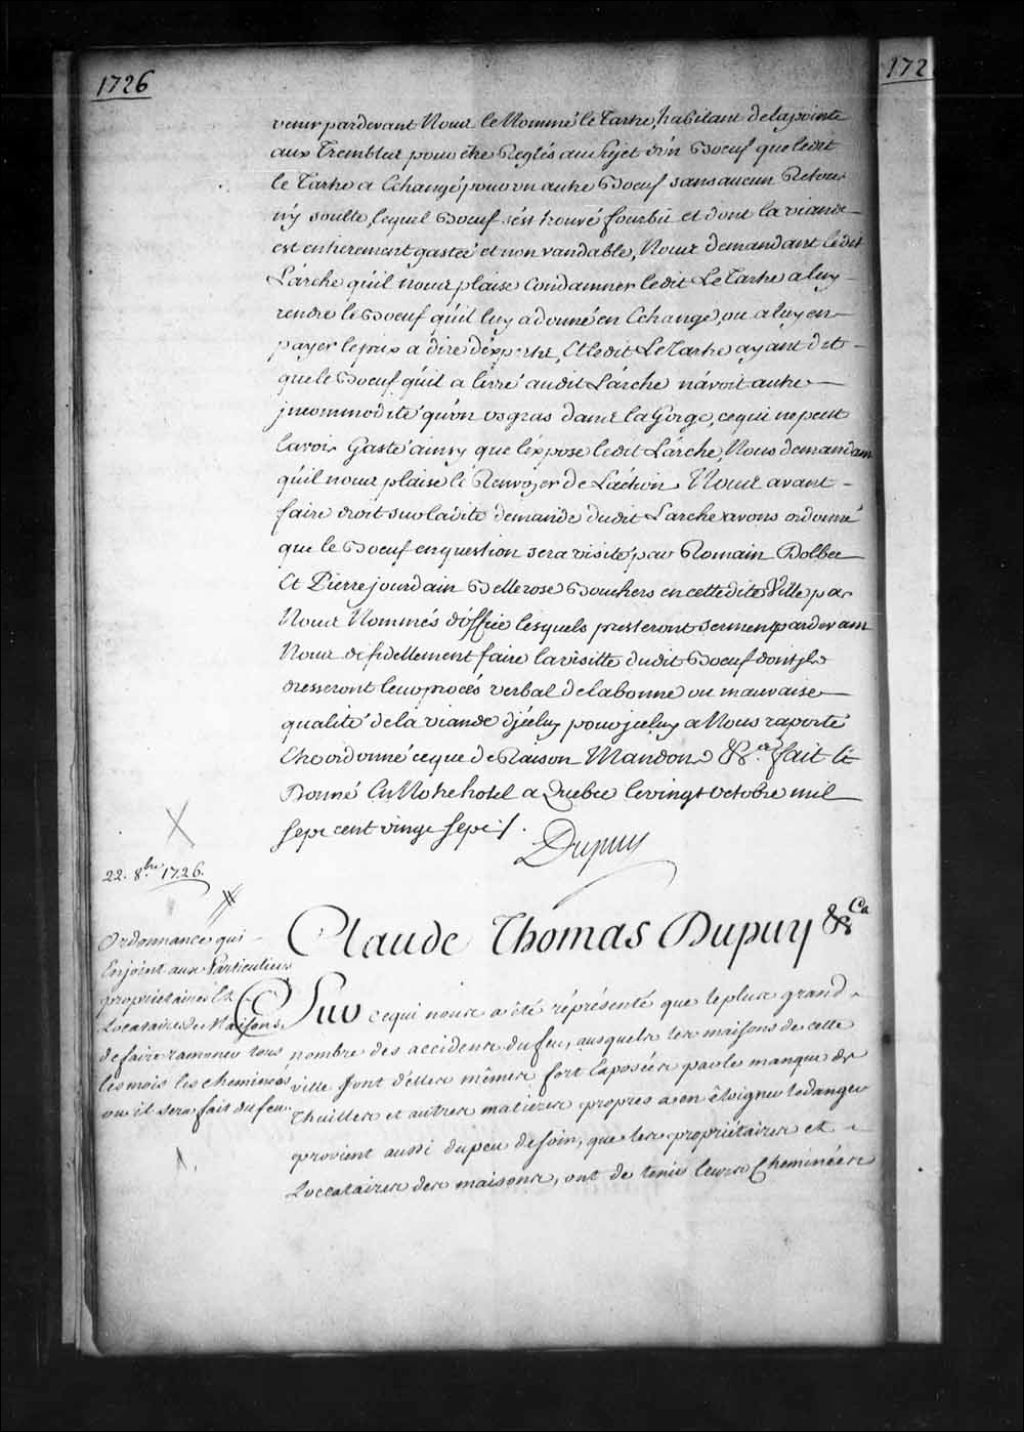 1726
172
venir pardevant Nous le Nommé le Tartre, habitant de la pointe
aux Trembles pour être Reglés au Sujet d'un Boeuf que ledit
le Tartre a Echangé pour un autre Boeuf sans aucun Retour
n'y soulte, lequel Boeuf s'est trouvé fourbu et dont la viande
est entierement gastée et non vandable, Nous demandant ledit
L'arche qu'il nous plaise Condamner ledit Le Tartre a luy
rendre le Boeuf qu'il luy a donné en Echange, ou a luy en
payer le prix a dire d'experts, Et ledit Le Tartre ayant dit
que le Boeuf qu'il a livré audit L'arche n'avoit autre
jncommodité qu'un os gras dans la Gorge, ce qui ne peut
l'avoir Gasté ainsy que l'expose ledit L'arche, Nous demandant
qu'il nous plaise le Renvoyer de L'action. Nous avant
faire droit sur ladite demande dudit Larche avons ordonné
que le Boeuf en question sera visité par Romain Dolbec
Et Pierre jourdain Bellerose Bouchers en cette dite Ville par
Nous Nommés d'office lesquels presteront serment pardevant
Nous de fidellement faire la visitte dudit Boeuf dont jls
dresseront leur procés verbal de la bonne ou mauvaise
qualité de la viande d'jceluy pour jceluy a Nous raporté
Etre ordonné ce que de Raison Mandons &c.a fait et
Donné En Notre hotel a Quebec le vingt octobre mil
Sept cent vingt Sept /.
Dupuy
22. 8.bre 1726.
Ordonnance qui
Enjoint aux Particuliers
proprietaires Et
Locataires des Maisons
de faire ramoner tous
les mois les cheminées
ou il sera fait du feu.
Claude Thomas Dupuy &Ca
Sur ce qui nous a été réprésenté que le plus grand
nombre des accidens du feu, ausquels les maisons de cette
ville sont d'elles mêmes fort Exposées par le manque de
Thuilles et autres matieres propres a en éloigner le danger
provient aussi du peu de soin, que les propriétaires et
Loccataires des maisons, ont de tenir leurs Cheminées